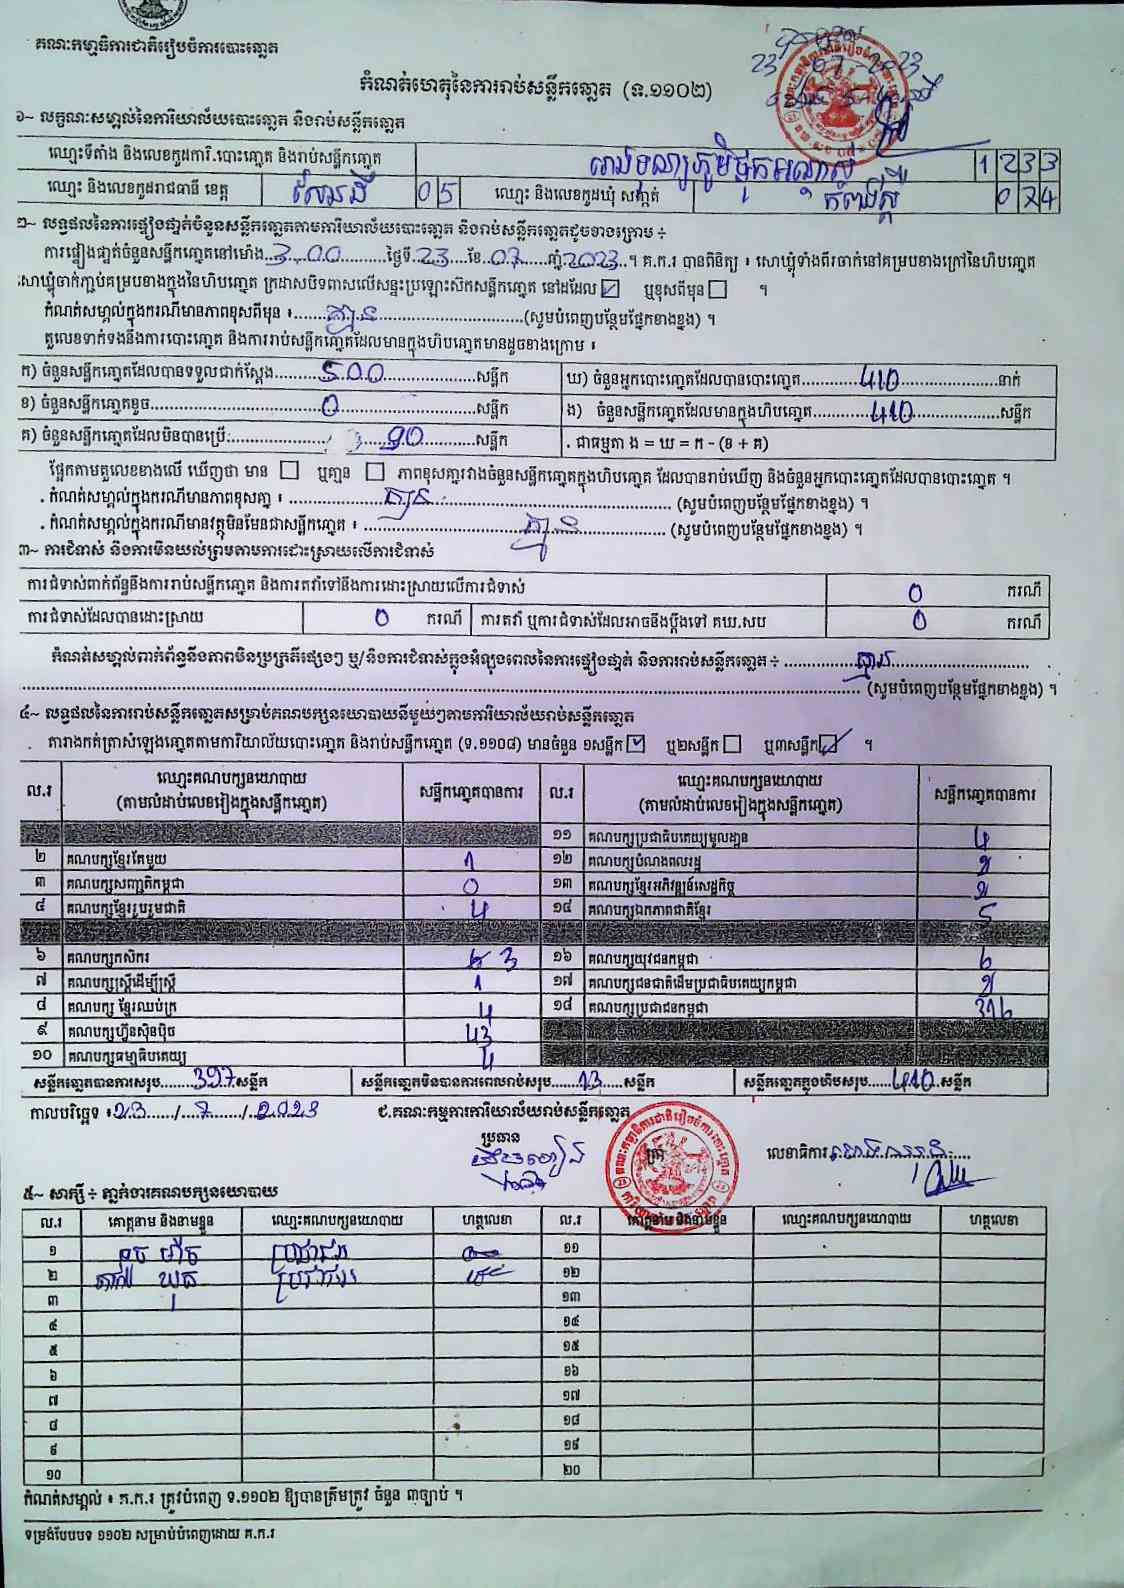 គណៈកម្មាធិការជាតិរៀបចំការបោះឆ្នោត
23 07 2023
កំណត់ហេតុនៃការរាប់សន្លឹកឆ្នោត (ទ.១១០២)
១~ លក្ខណៈសម្គាល់នៃការិយាល័យបោះឆ្នោត និងរាប់សន្លឹកឆ្នោត
ឈ្មោះទីតាំង និងលេខកូដការិ.បោះឆ្នោត និងរាប់សន្លឹកឆ្នោត 1 2 3 3
ឈ្មោះ និងលេខកូដរាជធានី ខេត្ត 0 5 ឈ្មោះ និងលេខកូដឃុំ សង្កាត់ 0 2 4
២~ លទ្ធផលនៃការផ្ទៀងផ្ទាត់ចំនួនសន្លឹកឆ្នោតតាមការិយាល័យបោះឆ្នោត និងរាប់សន្លឹកឆ្នោតដូចខាងក្រោម ៖
ការផ្ទៀងផ្ទាត់ចំនួនសន្លឹកឆ្នោតនៅម៉ោង..3..00..ថ្ងៃទី.23..ខែ.07..ឆ្នាំ.2023..។ គ.ក.រ បានពិនិត្យ ៖ សោឃ្មុំទាំងពីរចាក់នៅគម្របខាងក្រៅនៃហិបឆ្នោត
សោឃ្មុំចាក់ភ្ជាប់គម្របខាងក្នុងនៃហិបឆ្នោត ក្រដាសបិទពាសលើសន្ទះប្រឡោះស៊កសន្លឹកឆ្នោត នៅដដែល ☑ ឬខុសពីមុន ☐ ។
កំណត់សម្គាល់ក្នុងករណីមានភាពខុសពីមុន ៖ គ្មាន (សូមបំពេញបន្ថែមផ្នែកខាងខ្នង) ។
តួលេខទាក់ទងនឹងការបោះឆ្នោត និងការរាប់សន្លឹកឆ្នោតដែលមានក្នុងហិបឆ្នោតមានដូចខាងក្រោម ៖
ក) ចំនួនសន្លឹកឆ្នោតដែលបានទទួលជាក់ស្តែង 500 សន្លឹក ឃ) ចំនួនអ្នកបោះឆ្នោតដែលបានបោះឆ្នោត 410 នាក់
ខ) ចំនួនសន្លឹកឆ្នោតខូច 0 សន្លឹក ង) ចំនួនសន្លឹកឆ្នោតដែលមានក្នុងហិបឆ្នោត 410 សន្លឹក
គ) ចំនួនសន្លឹកឆ្នោតដែលមិនបានប្រើ 90 សន្លឹក . ជាធម្មតា ង = ឃ = ក - (ខ + គ)
ផ្អែកតាមតួលេខខាងលើ ឃើញថា មាន ☐ ឬគ្មាន ☐ ភាពខុសគ្នារវាងចំនួនសន្លឹកឆ្នោតក្នុងហិបឆ្នោត ដែលបានរាប់ឃើញ និងចំនួនអ្នកបោះឆ្នោតដែលបានបោះឆ្នោត ។
. កំណត់សម្គាល់ក្នុងករណីមានភាពខុសគ្នា ៖ គ្មាន (សូមបំពេញបន្ថែមផ្នែកខាងខ្នង) ។
. កំណត់សម្គាល់ក្នុងករណីមានវត្ថុមិនមែនជាសន្លឹកឆ្នោត ៖ គ្មាន (សូមបំពេញបន្ថែមផ្នែកខាងខ្នង) ។
៣~ ការជំទាស់ និងការមិនយល់ព្រមតាមការដោះស្រាយលើការជំទាស់
ការជំទាស់ពាក់ព័ន្ធនឹងការរាប់សន្លឹកឆ្នោត និងការតវ៉ាទៅនឹងការដោះស្រាយលើការជំទាស់ 0 ករណី
ការជំទាស់ដែលបានដោះស្រាយ 0 ករណី ការតវ៉ា ឬការជំទាស់ដែលអាចនឹងប្តឹងទៅ គឃ.សប 0 ករណី
កំណត់សម្គាល់ពាក់ព័ន្ធនឹងភាពមិនប្រក្រតីផ្សេងៗ ឬ/និងការជំទាស់ក្នុងអំឡុងពេលនៃការផ្ទៀងផ្ទាត់ និងការរាប់សន្លឹកឆ្នោត ៖ គ្មាន
(សូមបំពេញបន្ថែមផ្នែកខាងខ្នង) ។
៤~ លទ្ធផលនៃការរាប់សន្លឹកឆ្នោតសម្រាប់គណបក្សនយោបាយនីមួយៗតាមការិយាល័យរាប់សន្លឹកឆ្នោត
តារាងកត់ត្រាសំឡេងឆ្នោតតាមការិយាល័យបោះឆ្នោត និងរាប់សន្លឹកឆ្នោត (ទ.១១០៨) មានចំនួន ១សន្លឹក ☑ ឬ២សន្លឹក ☐ ឬ៣សន្លឹក ☑ ។
ល.រ ឈ្មោះគណបក្សនយោបាយ (តាមលំដាប់លេខរៀងក្នុងសន្លឹកឆ្នោត) សន្លឹកឆ្នោតបានការ ល.រ ឈ្មោះគណបក្សនយោបាយ (តាមលំដាប់លេខរៀងក្នុងសន្លឹកឆ្នោត) សន្លឹកឆ្នោតបានការ
១១ គណបក្សប្រជាធិបតេយ្យមូលដ្ឋាន 4
២ គណបក្សខ្មែរតែមួយ 1 ១២ គណបក្សបំណងពលរដ្ឋ
៣ គណបក្សសញ្ជាតិកម្ពុជា 0 ១៣ គណបក្សខ្មែរអភិវឌ្ឍន៍សេដ្ឋកិច្ច
៤ គណបក្សខ្មែររួបរួមជាតិ 4 ១៤ គណបក្សឯកភាពជាតិខ្មែរ 5
៦ គណបក្សកសិករ 3 ១៦ គណបក្សយុវជនកម្ពុជា 6
៧ គណបក្សស្ត្រីដើម្បីស្ត្រី 1 ១៧ គណបក្សជនជាតិដើមប្រជាធិបតេយ្យកម្ពុជា
៨ គណបក្ស ខ្មែរឈប់ក្រ 4 ១៨ គណបក្សប្រជាជនកម្ពុជា 316
៩ គណបក្សហ្វ៊ុនស៊ិនប៉ិច 43
១០ គណបក្សធម្មាធិបតេយ្យ 4
សន្លឹកឆ្នោតបានការសរុប 397 សន្លឹក សន្លឹកឆ្នោតមិនបានការពេលរាប់សរុប 13 សន្លឹក សន្លឹកឆ្នោតក្នុងហិបសរុប 410 សន្លឹក
កាលបរិច្ឆេទ ៖ 23 / 7 / 2023 ជ.គណៈកម្មការការិយាល័យរាប់សន្លឹកឆ្នោត
ប្រធាន លេខាធិការ
៥~ សាក្សី ៖ ភ្នាក់ងារគណបក្សនយោបាយ
ល.រ គោត្តនាម និងនាមខ្លួន ឈ្មោះគណបក្សនយោបាយ ហត្ថលេខា ល.រ គោត្តនាម និងនាមខ្លួន ឈ្មោះគណបក្សនយោបាយ ហត្ថលេខា
១ ១១
២ ១២
៣ ១៣
៤ ១៤
៥ ១៥
៦ ១៦
៧ ១៧
៨ ១៨
៩ ១៩
១០ ២០
កំណត់សម្គាល់ ៖ គ.ក.រ ត្រូវបំពេញ ទ.១១០២ ឱ្យបានត្រឹមត្រូវ ចំនួន ៣ច្បាប់ ។
ទម្រង់បែបបទ ១១០២ សម្រាប់បំពេញដោយ គ.ក.រ